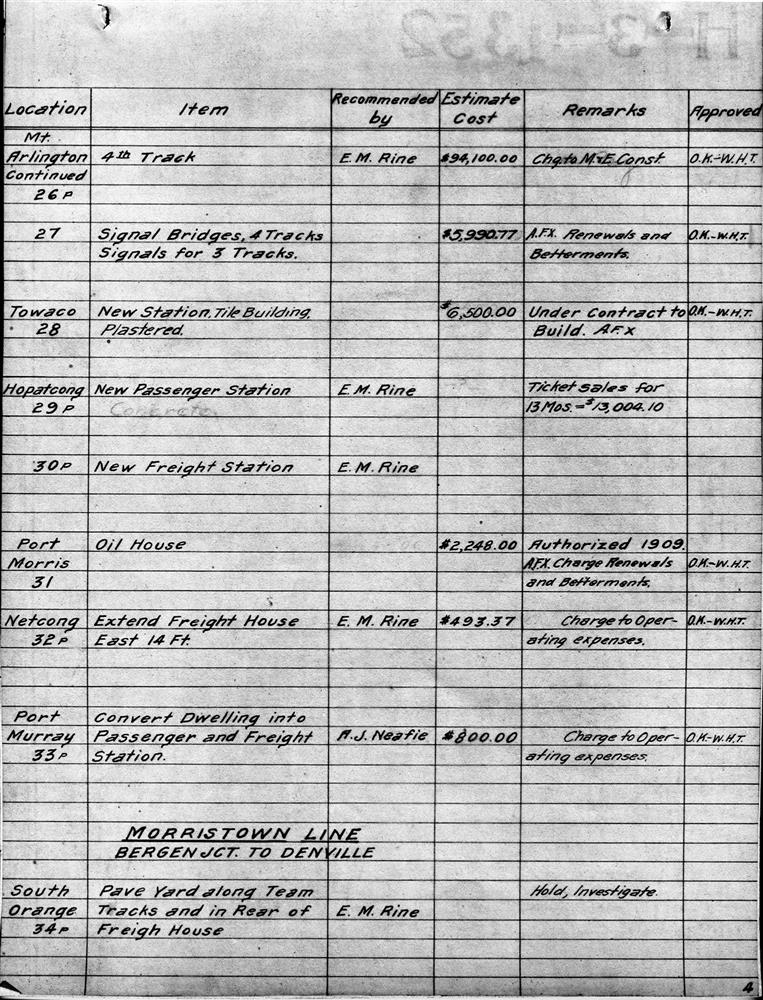 H-3-1352
Location Item Recommended by Estimate Cost Remarks Approved
Mt.
Arlington 4th Track E.M. Rine $94,100.00 Chg. to M.&E. Const. O.K.-W.H.T.
Continued
26 P
27 Signal Bridges, 4 Tracks $5,990.77 A.F.X. Renewals and O.K.-W.H.T.
Signals for 3 Tracks. Betterments.
Towaco New Station, Tile Building, $6,500.00 Under Contract to O.K.-W.H.T.
28 Plastered. Build. A.F.X
Hopatcong New Passenger Station E.M. Rine Ticket sales for
29 P Concrete. 13 Mos. = $13,004.10
30 P New Freight Station E.M. Rine
Port Oil House $2,248.00 Authorized 1909.
Morris A.F.X. Charge Renewals O.K.-W.H.T.
31 and Betterments.
Netcong Extend Freight House E. M. Rine $493.37 Charge to Oper- O.K.-W.H.T.
32 P East 14 Ft. ating expenses.
Port Convert Dwelling into
Murray Passenger and Freight A.J. Neafie $800.00 Charge to Oper- O.K-W.H.T.
33 P Station. ating expenses.
MORRISTOWN LINE
BERGEN JCT. TO DENVILLE
South Pave Yard along Team Hold, Investigate.
Orange Tracks and in Rear of E. M. Rine
34 P Freigh House
4